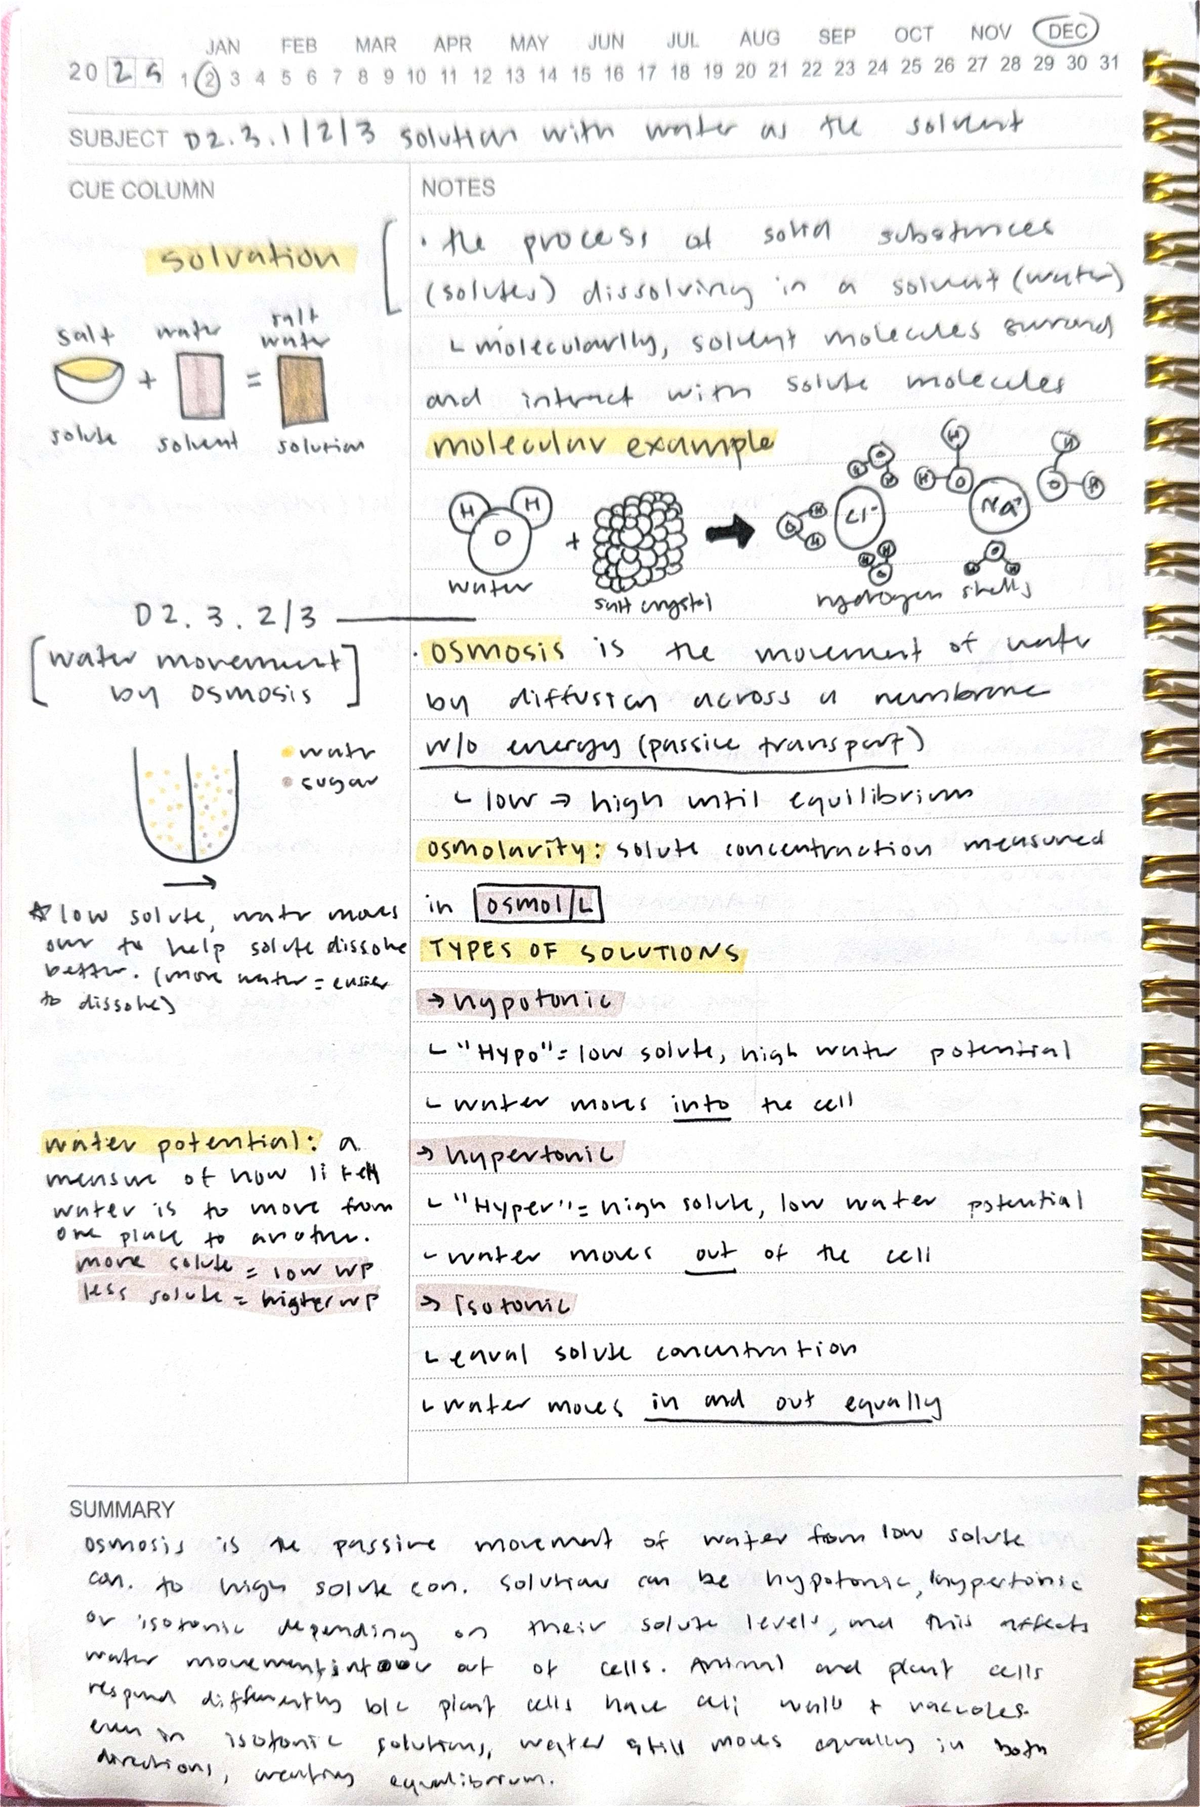 JAN FEB MAR APR MAY JUN JUL AUG SEP OCT NOV DEC
20 25 1 2 3 4 5 6 7 8 9 10 11 12 13 14 15 16 17 18 19 20 21 22 23 24 25 26 27 28 29 30 31
SUBJECT D2.3.1/2/3 solution with water as the solvent
CUE COLUMN
solvation
salt water salt water
+ =
solute solvent solution
D2.3.2/3
[water movement
by osmosis]
water
sugar
→
☆ low solute, water moves
our to help solute dissolve
better. (more water = easier
to dissolve)
water potential: a
measure of how likely
water is to move from
one place to another.
more solute = low WP
less solute = higher WP
NOTES
• the process of solid substances
(solutes) dissolving in a solvent (water)
└ molecularlly, solvent molecules surround
and interact with solute molecules
molecular example
H H O + → H H O Cl⁻ Na⁺
water salt crystal hydrogen shells
• osmosis is the movement of water
by diffusion across a membrane
w/o energy (passive transport)
└ low → high until equilibrium
osmolarity: solute concentraction measured
in osmol/L
TYPES OF SOLUTIONS
→ hypotonic
└ "Hypo" = low solute, high water potential
└ water moves into the cell
→ hypertonic
└ "Hyper" = high solute, low water potential
└ water moves out of the cell
→ Isotonic
└ equal solute concentration
└ water moves in and out equally
SUMMARY
osmosis is the passive movement of water from low solute
con. to high solute con. solutions can be hypotonic, hypertonic
or isotonic depending on their solute levels, and this affects
water movement into or out of cells. Animal and plant cells
respond differently b/c plant cells have cell walls + vacuoles.
even in isotonic solutions, water still moves equally in both
directions, creating equalibrium.